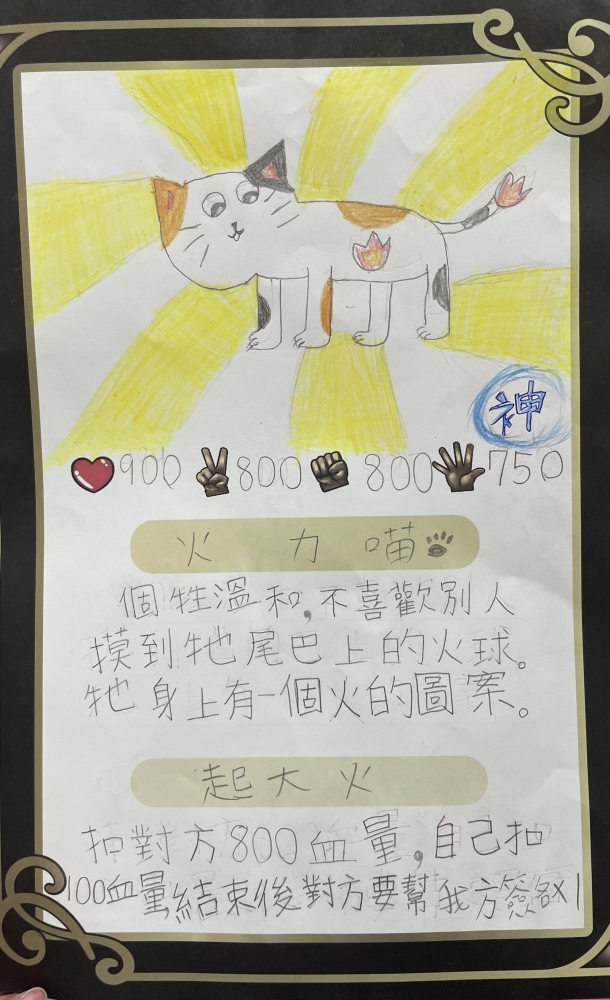 神
900 800 800 750
火力喵
個牲溫和,不喜歡別人
摸到牠尾巴上的火球。
牠身上有一個火的圖案。
起大火
扣對方800血量,自己扣
100血量結束後對方要幫我方簽名x1